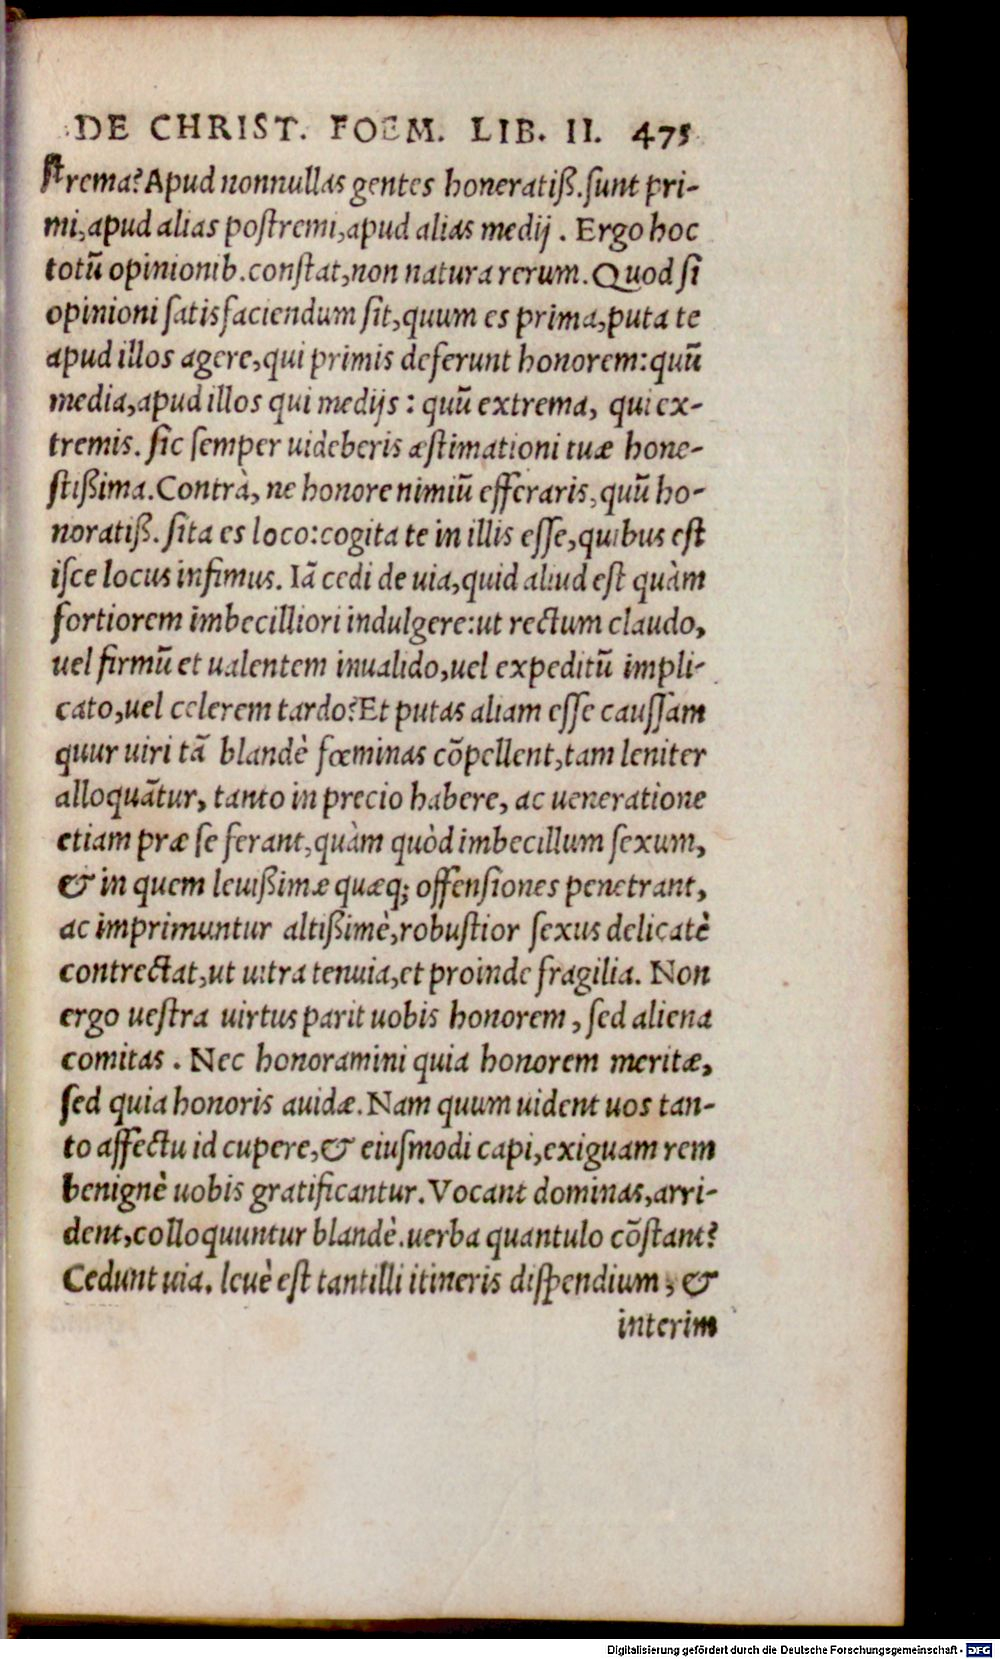 DE CHRIST. FOEM. LIB. II. 475
ſtrema? Apud nonnullas gentes honeratiß. ſunt pri-
mi, apud alias poſtremi, apud alias medij. Ergo hoc
totũ opinionib. conſtat, non natura rerum. Quod ſi
opinioni ſatisfaciendum ſit, quum es prima, puta te
apud illos agere, qui primis deferunt honorem: quũ
media, apud illos qui medijs: quũ extrema, qui ex-
tremis. ſic ſemper uideberis æſtimationi tuæ hone-
ſtißima. Contrà, ne honore nimiũ efferaris, quũ ho-
noratiß. ſita es loco: cogita te in illis eſſe, quibus eſt
iſce locus infimus. Iã cedi de uia, quid aliud eſt quàm
fortiorem imbecilliori indulgere: ut rectum claudo,
uel firmũ et ualentem inualido, uel expeditũ impli-
cato, uel celerem tardo? Et putas aliam eſſe cauſſam
quur uiri tã blandè fœminas cõpellent, tam leniter
alloquãtur, tanto in precio habere, ac ueneratione
etiam præ ſe ferant, quàm quòd imbecillum ſexum,
& in quem leuißimæ quæq; offenſiones penetrant,
ac imprimuntur altißimè, robuſtior ſexus delicatè
contrectat, ut uitra tenuia, et proinde fragilia. Non
ergo ueſtra uirtus parit uobis honorem, ſed aliena
comitas. Nec honoramini quia honorem meritæ,
ſed quia honoris auidæ. Nam quum uident uos tan-
to affectu id cupere, & eiuſmodi capi, exiguam rem
benignè uobis gratificantur. Vocant dominas, arri-
dent, colloquuntur blandè. uerba quantulo cõſtant?
Cedunt uia. leuè eſt tantilli itineris diſpendium, &
interim
Digitalisierung gefördert durch die Deutsche Forschungsgemeinschaft - DFG